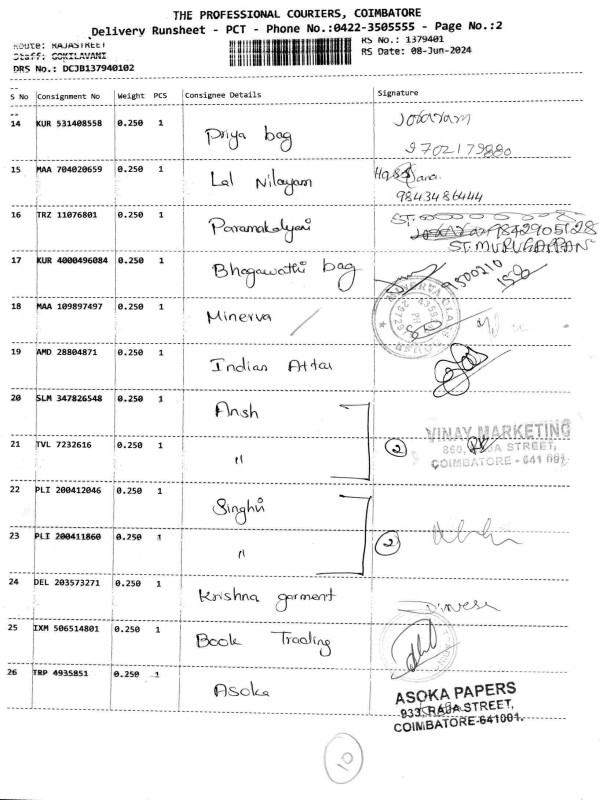 THE PROFESSIONAL COURIERS, COIMBATORE
Delivery Runsheet - PCT - Phone No.:0422-3505555 - Page No.:2
Route: RAJASTREET
RS No.: 1379401
Staff: GOKILAVANI
RS Date: 08-Jun-2024
DRS No.: DCJB137940102
S No Consignment No Weight PCS Consignee Details Signature
14 KUR 531408558 0.250 1 Priya bag
15 MAA 704020659 0.250 1 Lal Nilayam
9843486444
16 TRZ 11076801 0.250 1 Paramakalyani
9842905128
ST. MURUGAPPAN
17 KUR 4000496084 0.250 1 Bhagawathi bag
18 MAA 109897497 0.250 1 Minerva
19 AMD 28804871 0.250 1 Indian Attar
20 SLM 347826548 0.250 1 Ansh
21 TVL 7232616 0.250 1 "
2
VINAY MARKETING
860, RAJA STREET,
COIMBATORE - 641 001
22 PLI 200412046 0.250 1 Singhvi
23 PLI 200411860 0.250 1 "
2
24 DEL 203573271 0.250 1 Krishna garment
Dinesh
25 IXM 506514801 0.250 1 Book Trading
26 TRP 4935851 0.250 1 Asoka
ASOKA PAPERS
933, RAJA STREET,
COIMBATORE-641001.
10